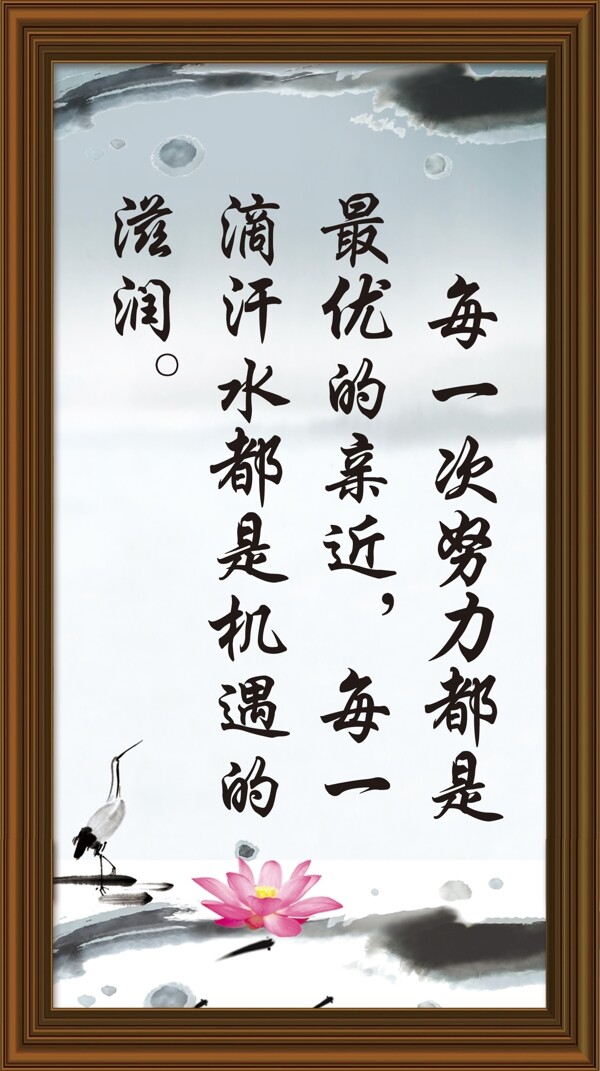 每一次努力都是
最优的亲近，每一
滴汗水都是机遇的
滋润。